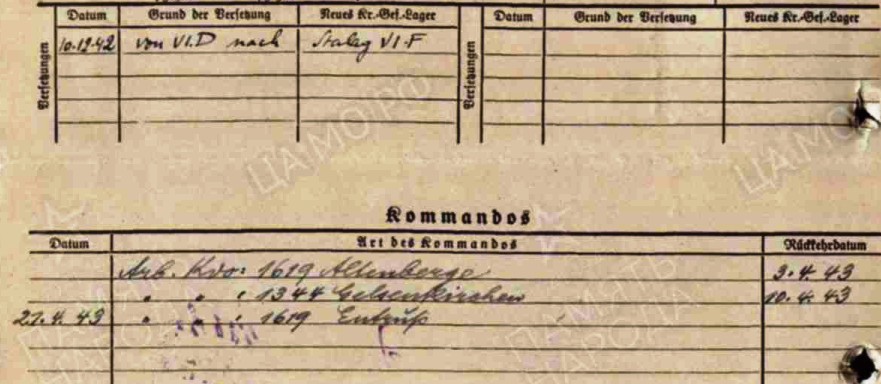 Datum Grund der Versetzung Neues Kr.-Gef.-Lager Datum Grund der Versetzung Neues Kr.-Gef.-Lager
Versetzungen 10.12.42 von VI.D nach Stalag VI-F Versetzungen
ЦАМО РФ ЦАМО
Kommandos
Datum Art des Kommandos Rückkehrdatum
Arb. Kdo: 1619 Altenberge 9.4.43
" " : 1344 Gelsenkirchen 10.4.43
" " : 1619
ПАМЯТЬ НАРОДА ПАМЯТЬ НАРОДА